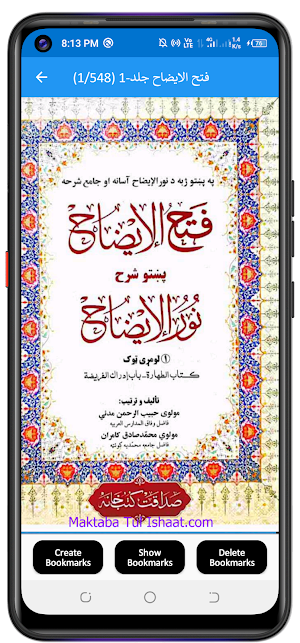 8:13 PM
Vo LTE
4G
1.4 K/s
76
فتح الايضاح جلد-1 (1/548)
په پښتو ژبه د نورالإيضاح آسانه او جامع شرحه
فَتحُ الإيضاح
پښتو شرح
نُورُ الإيضاح
① لومړی ټوک
کتاب الطهارة - باب إدراك الفريضة
تأليف و ترتيب:
مولوی حبيب الرحمن مدني
فاضل وفاق المدارس العربيه
مولوي محمدصادق کامران
فاضل جامعه محمديه کوئټه
صداقت کتب خانه
Maktaba Tul Ishaat.com
Create
Bookmarks
Show
Bookmarks
Delete
Bookmarks